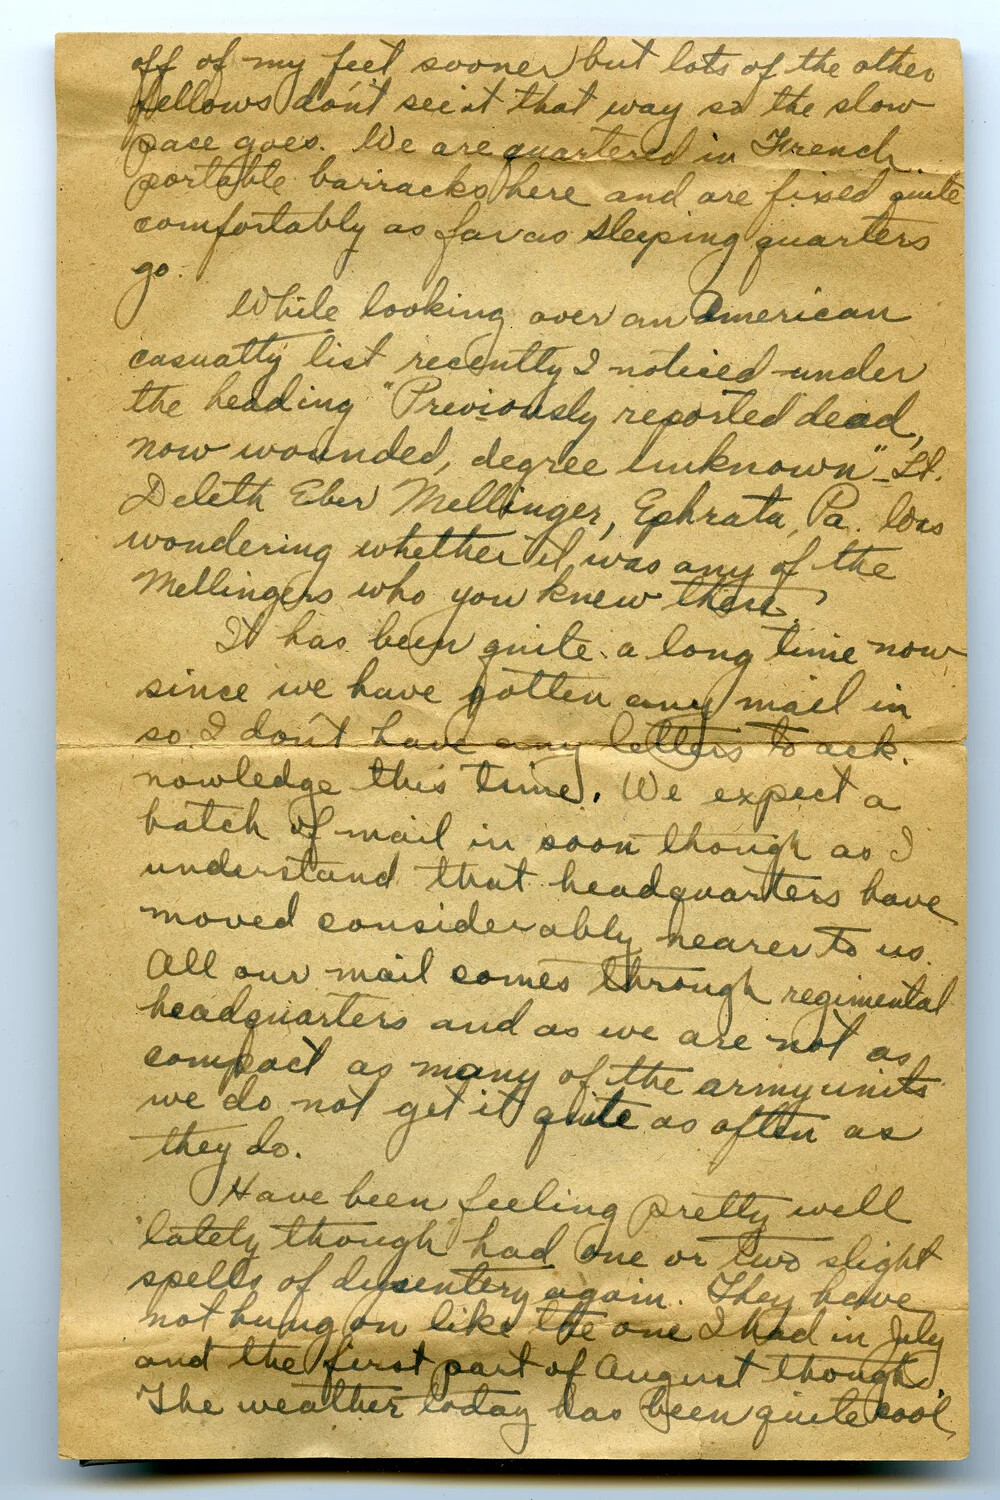 off of my feet sooner but lots of the other
fellows don't see it that way so the slow
pace goes. We are quartered in French
portable barracks here and are fixed quite
comfortably as far as sleeping quarters
go.
While looking over an American
casualty list recently I noticed under
the heading "Previously reported dead,
now wounded, degree unknown" - Lt.
Deleth Eber Mellinger, Ephrata, Pa. Was
wondering whether it was any of the
Mellingers who you knew there.
It has been quite a long time now
since we have gotten any mail in
so I don't have any letters to ack.
nowledge this time. We expect a
batch of mail in soon though as I
understand that headquarters have
moved considerably nearer to us.
All our mail comes through regimental
headquarters and as we are not as
compact as many of the army units
we do not get it quite as often as
they do.
Have been feeling pretty well
lately though had one or two slight
spells of dysentery again. They have
not hung on like the one I had in July
and the first part of August though.
The weather today has been quite cool,